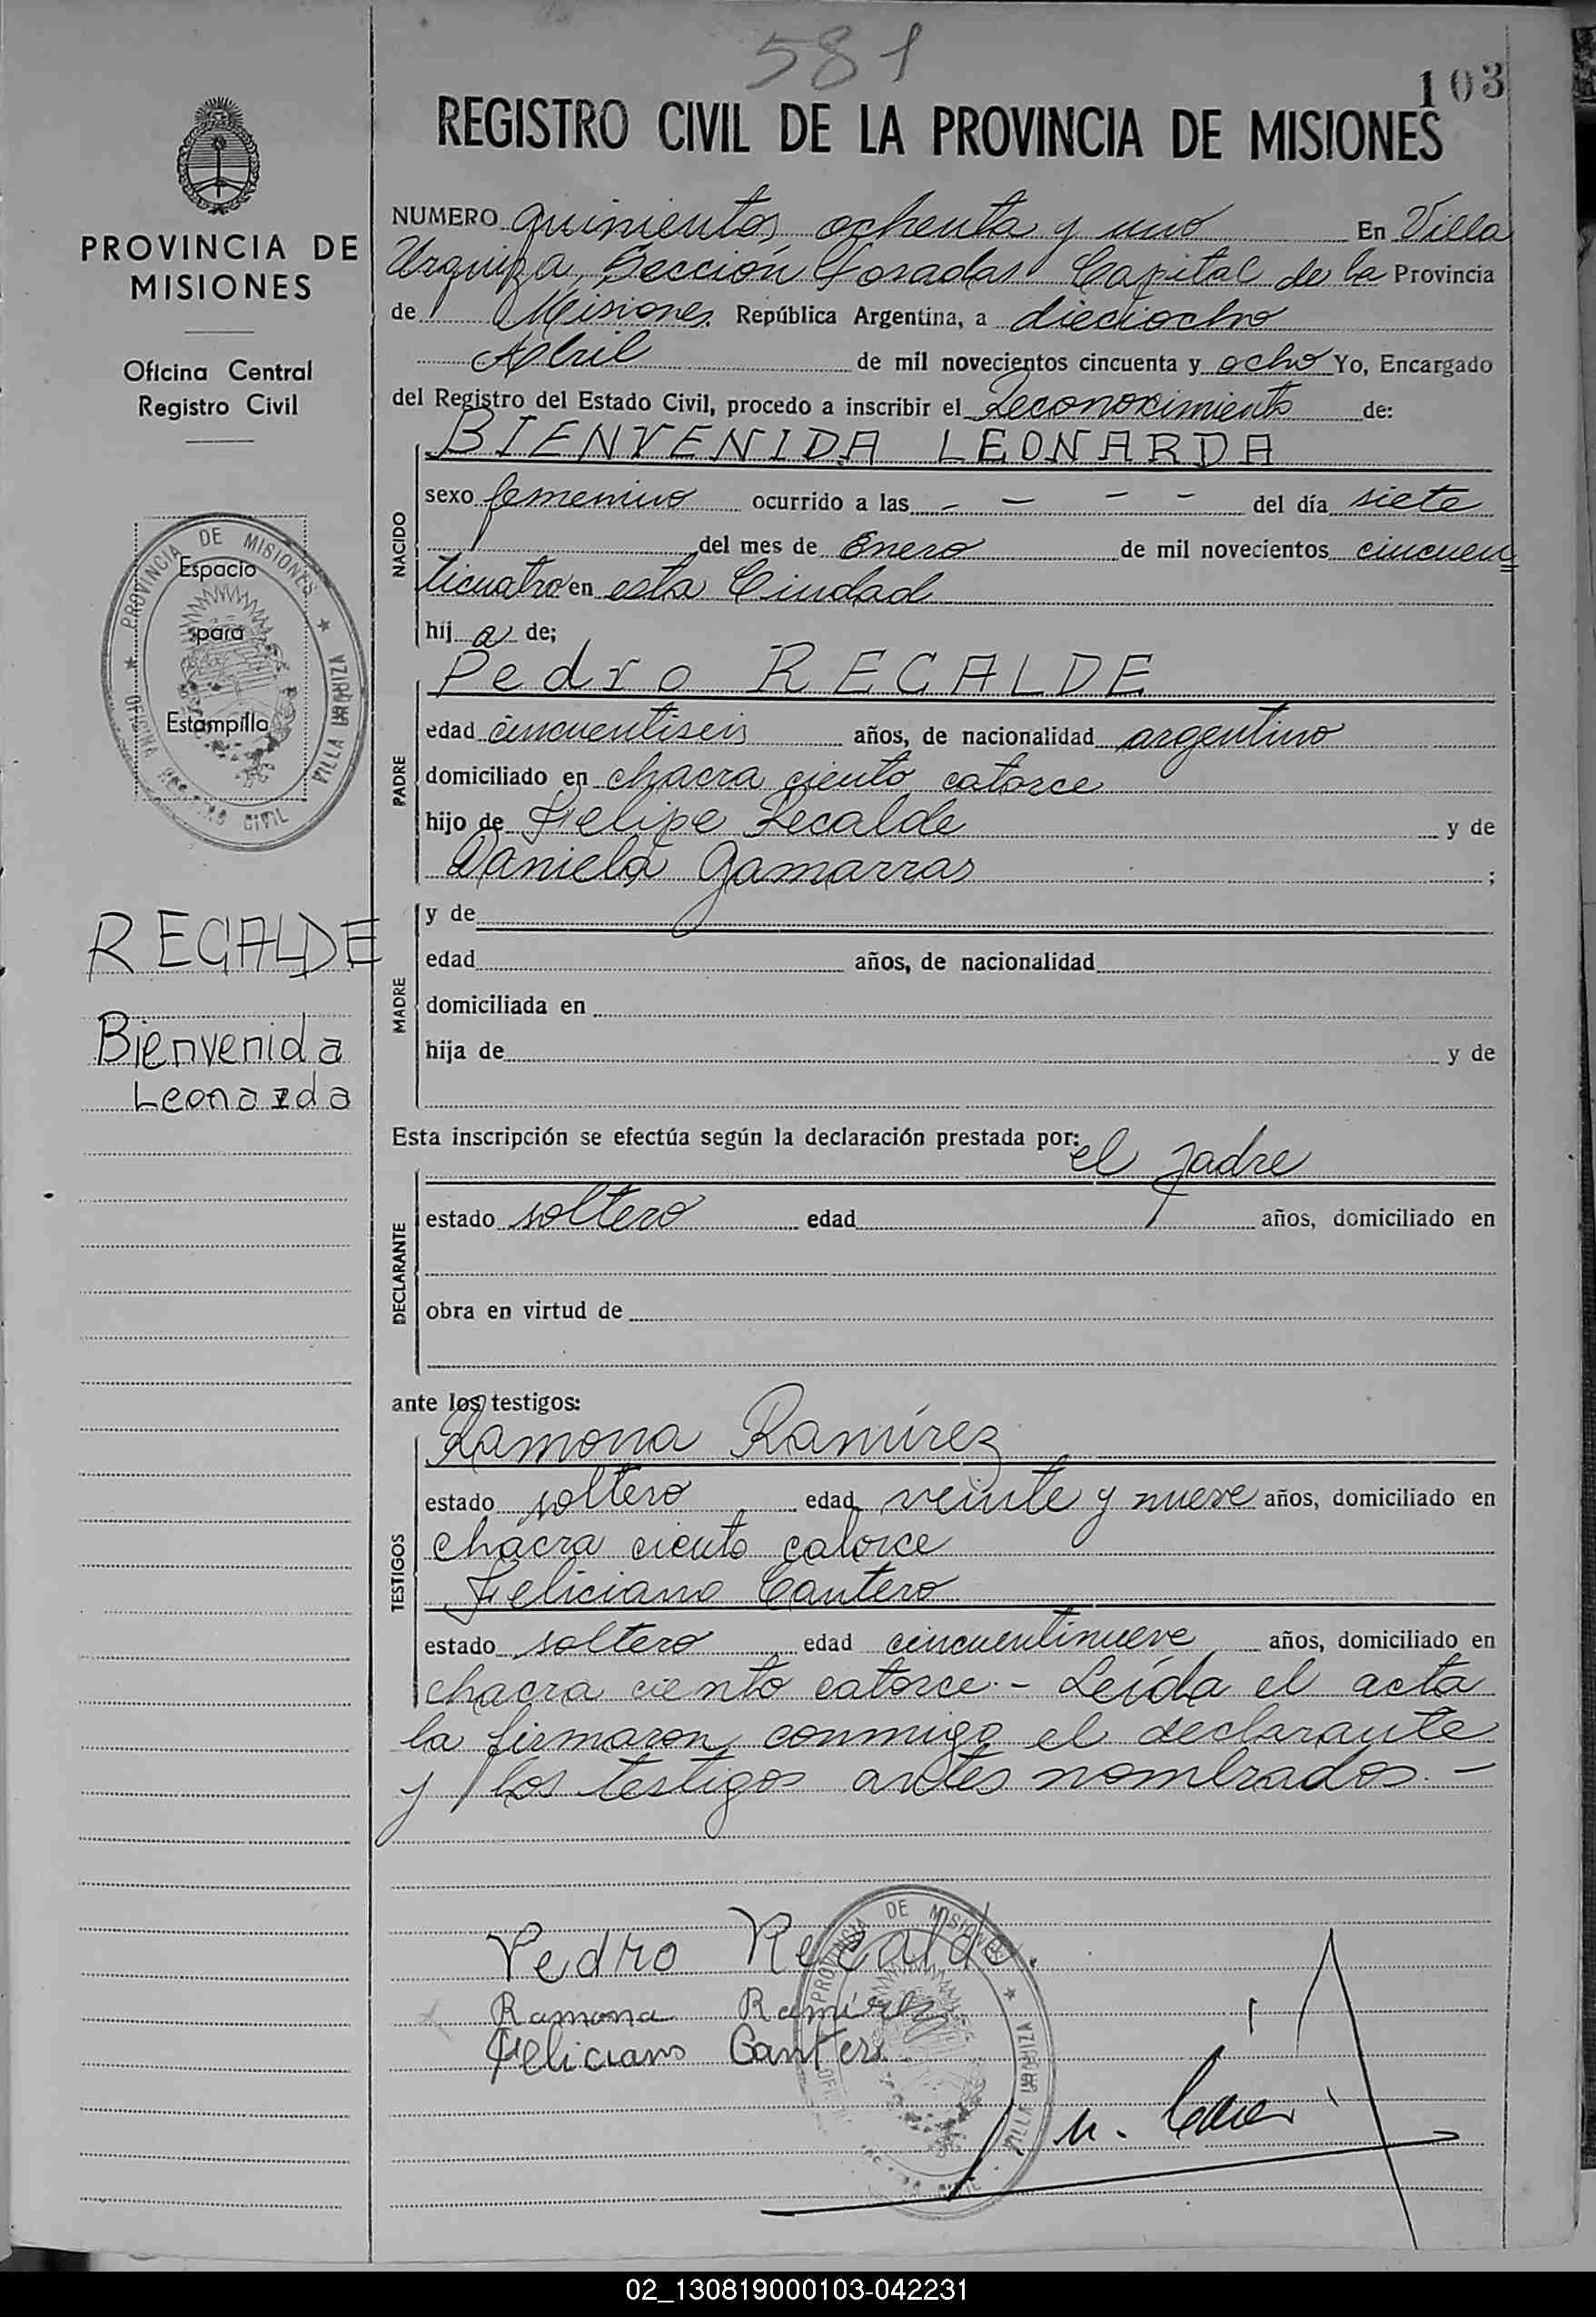 581
103
REGISTRO CIVIL DE LA PROVINCIA DE MISIONES
PROVINCIA DE
MISIONES
Oficina Central
Registro Civil
PROVINCIA DE MISIONES
VILLA URQUIZA
OFICINA
CIVIL
Espacio
para
Estampilla
RECALDE
Bienvenida
Leonarda
NUMERO quinientos ochenta y uno En Villa
Urquiza, Sección Posadas Capital de la Provincia
de Misiones República Argentina, a dieciocho
Abril de mil novecientos cincuenta y ocho Yo, Encargado
del Registro del Estado Civil, procedo a inscribir el Reconocimiento de:
BIENVENIDA LEONARDA
NACIDO
sexo femenino ocurrido a las - - - - del día siete
del mes de Enero de mil novecientos cincuen=
ticuatro en esta Ciudad
hij a de;
Pedro RECALDE
PADRE
edad cincuentiseis años, de nacionalidad argentino
domiciliado en chacra ciento catorce
hijo de Felipe Recalde y de
Daniela Gamarras ;
MADRE
y de
edad años, de nacionalidad
domiciliada en
hija de y de
Esta inscripción se efectúa según la declaración prestada por:
el padre
DECLARANTE
estado soltero edad años, domiciliado en
obra en virtud de
ante los testigos:
Ramona Ramírez
TESTIGOS
estado soltero edad veinte y nueve años, domiciliado en
chacra ciento catorce
Feliciano Cantero
estado soltero edad cincuentinueve años, domiciliado en
chacra ciento catorce.- Leída el acta
la firmaron conmigo el declarante
y los testigos antes nombrados.-
Pedro Recalde.
Ramona Ramírez
Feliciano Cantero
PROVINCIA DE MISIONES
VILLA URQUIZA
CIVIL
02_130819000103-042231